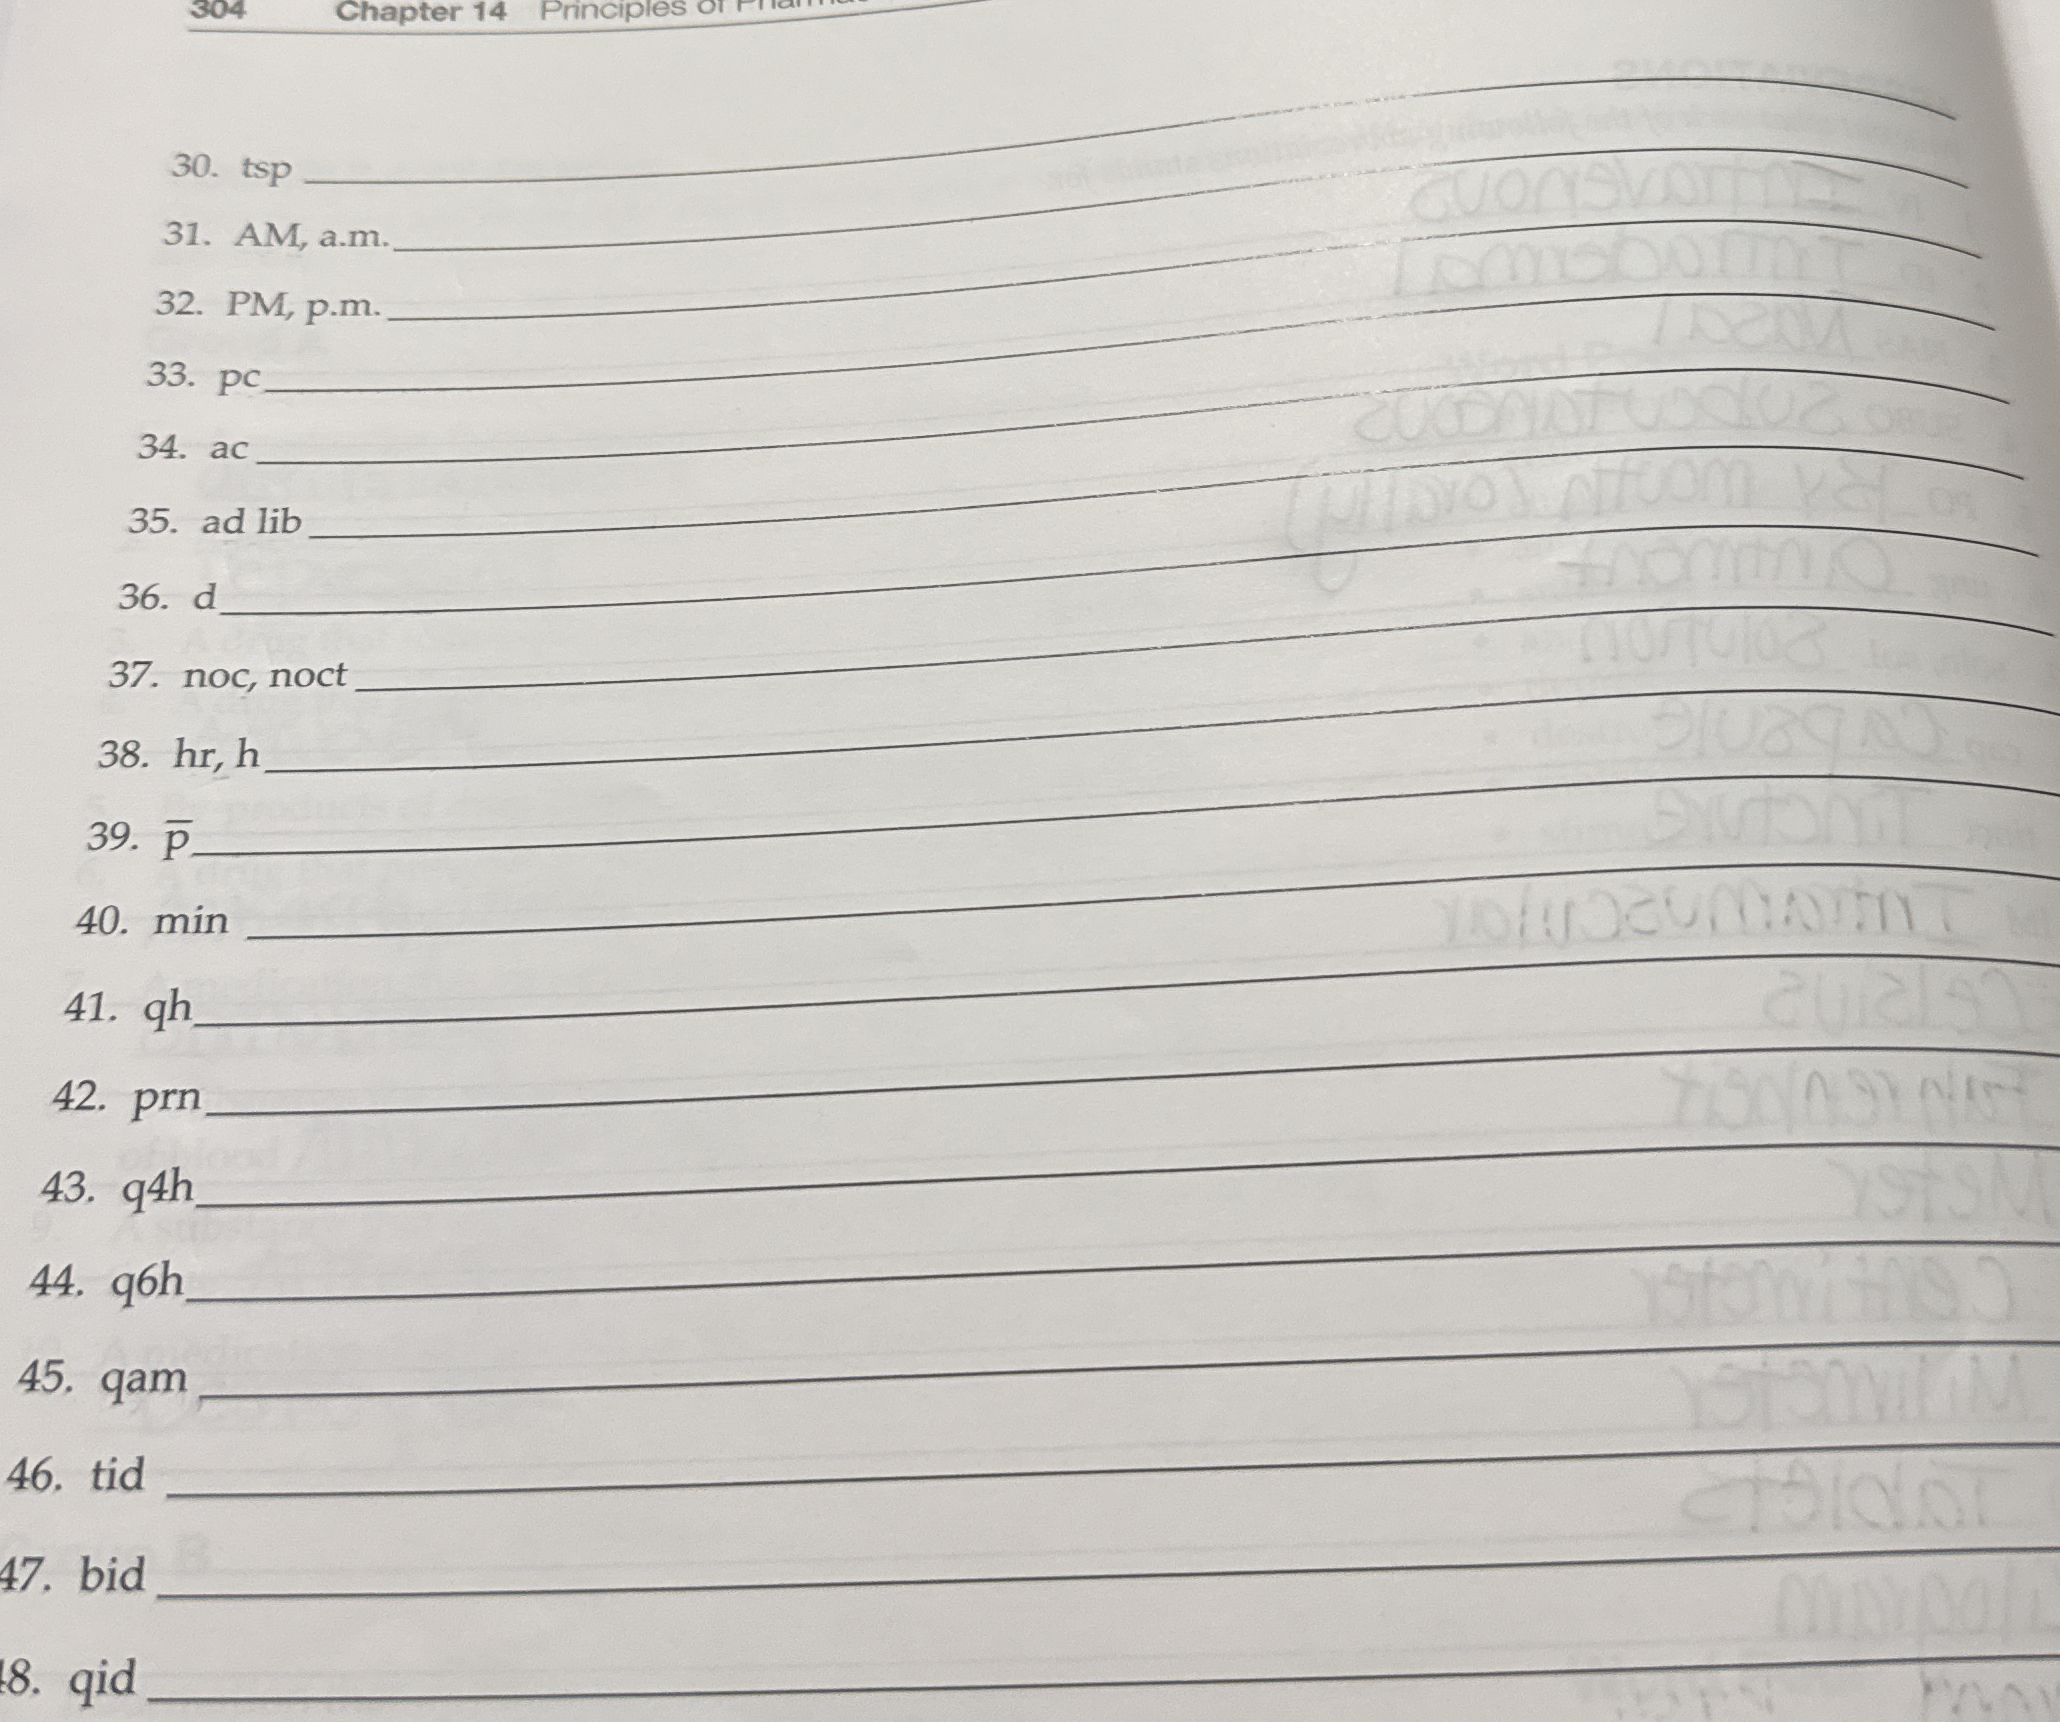 304 Chapter 14 Principles of
30. tsp
31. AM, a.m.
32. PM, p.m.
33. pc
34. ac
35. ad lib
36. d
37. noc, noct
38. hr, h
39. p̅
40. min
41. qh
42. prn
43. q4h
44. q6h
45. qam
46. tid
47. bid
48. qid